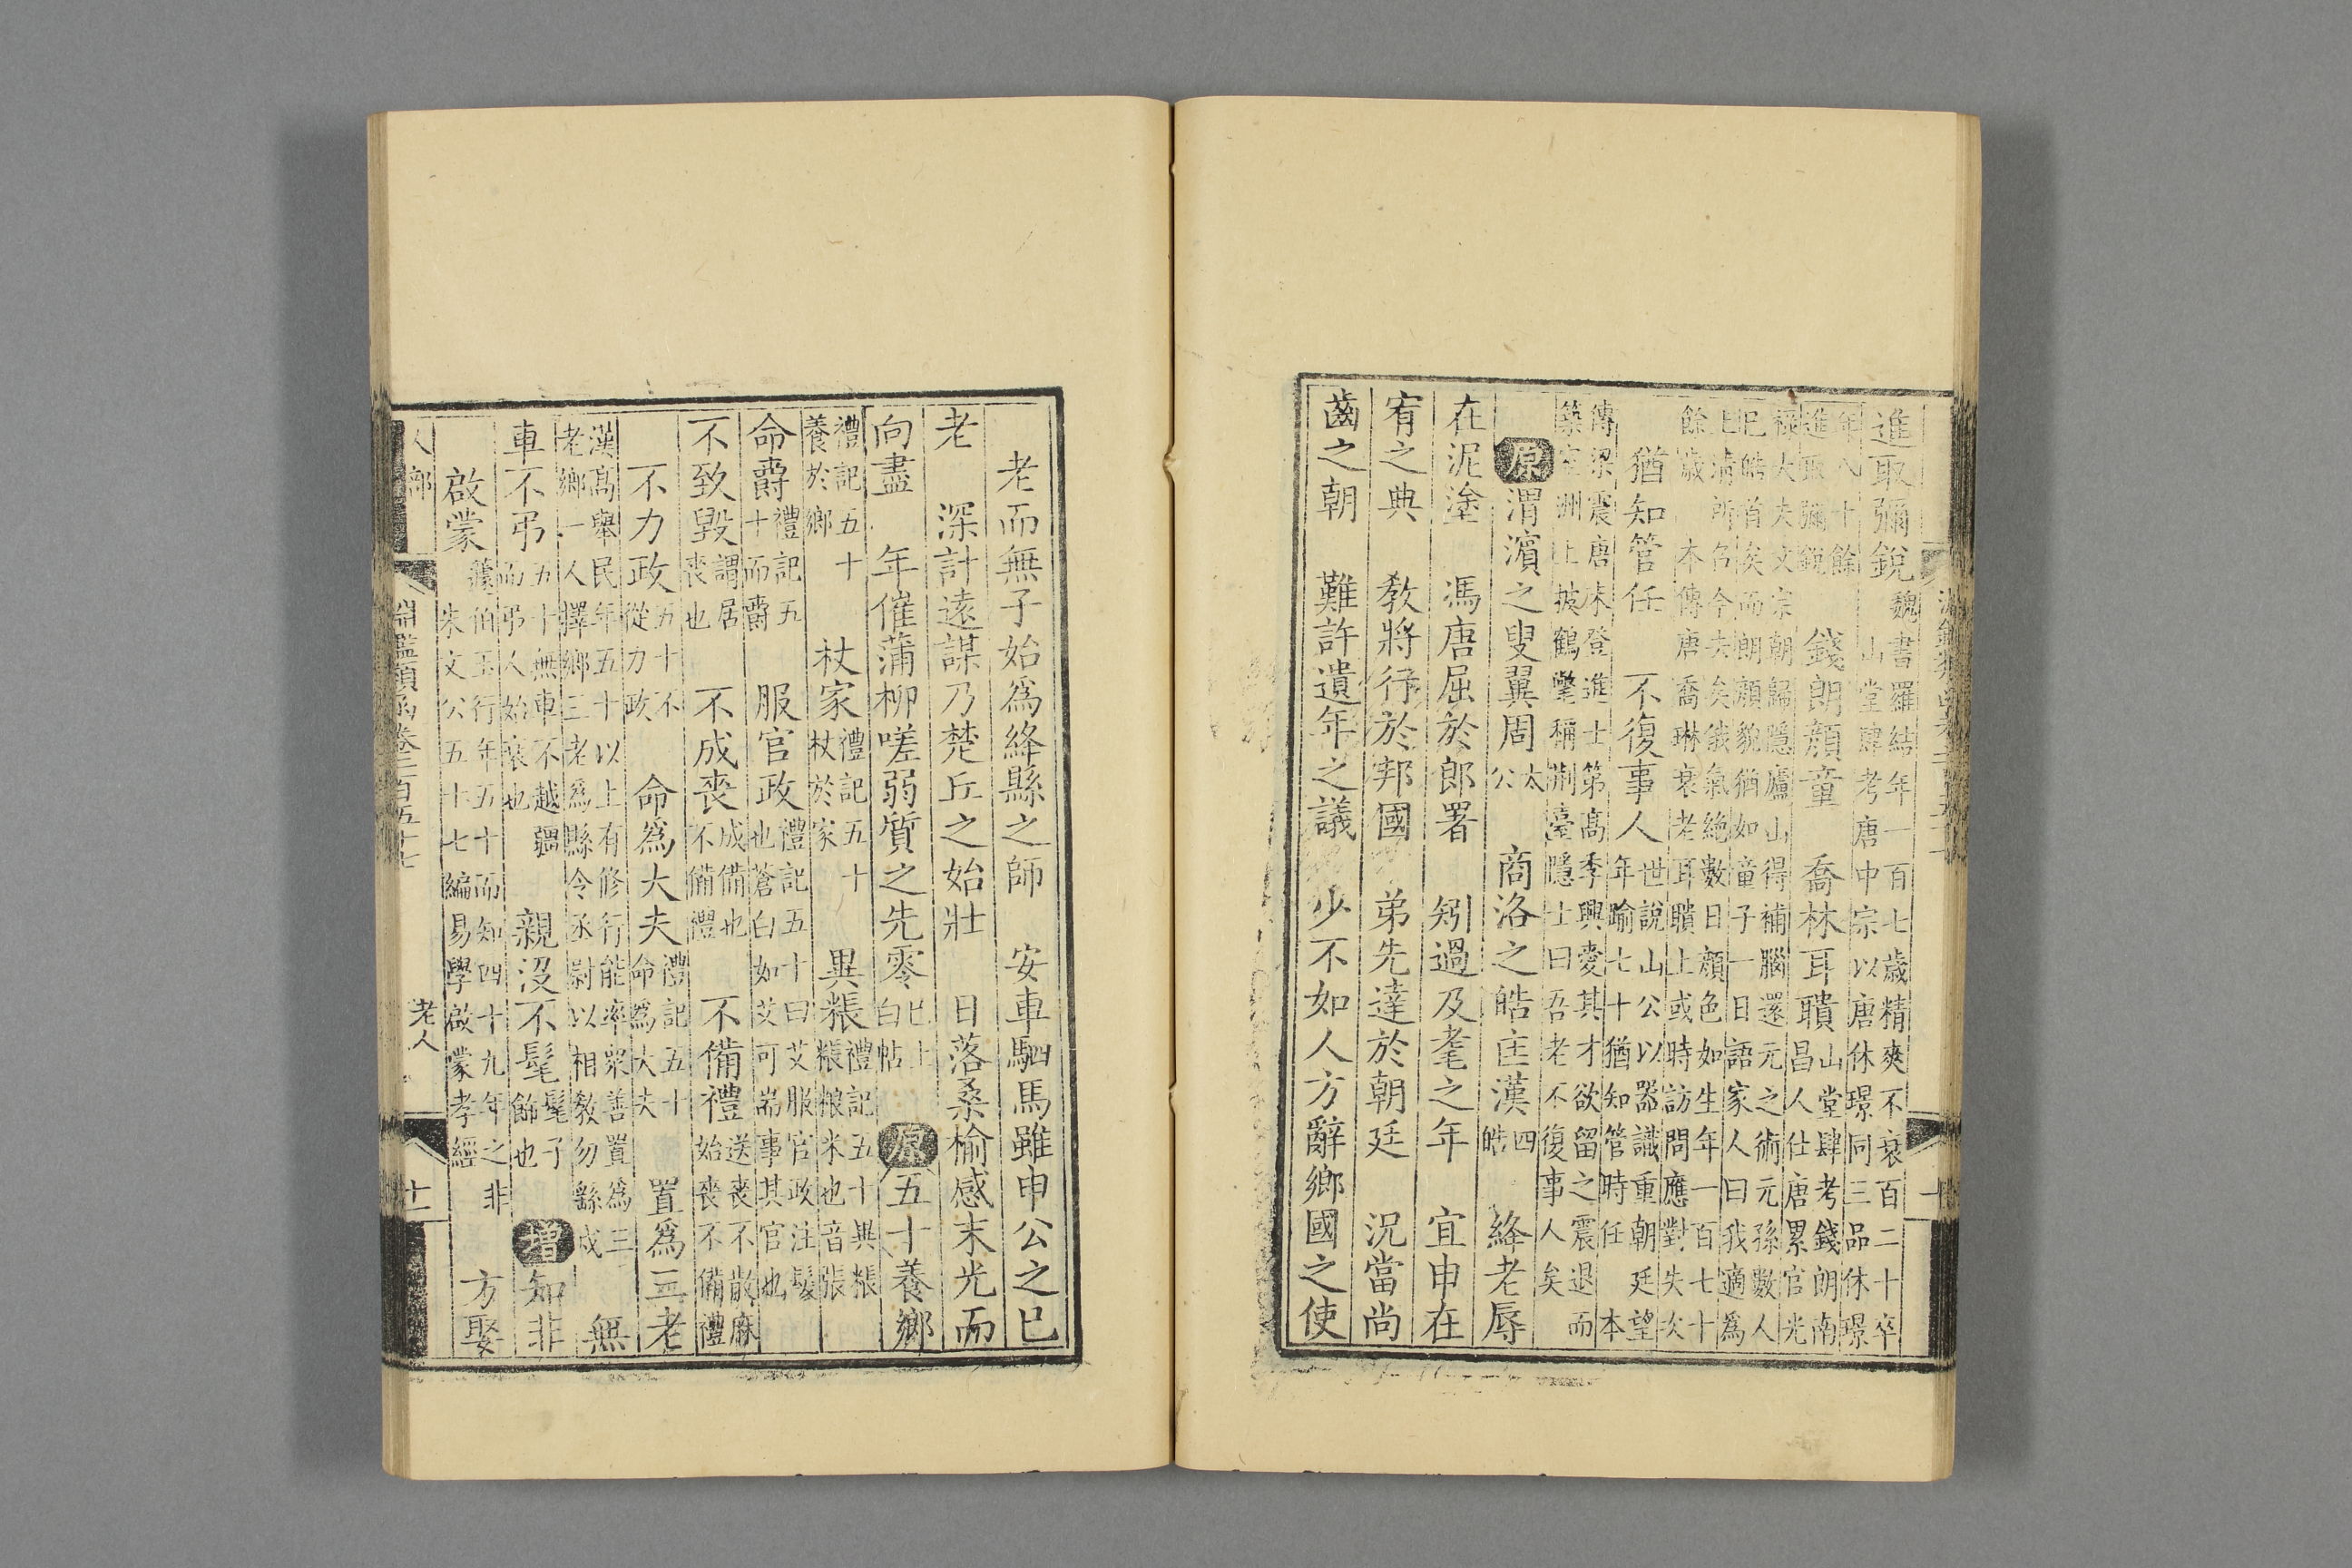 進取彌銳 魏書羅結年一百七歲精爽不衰百二十卒
山堂肆考唐中宗以唐休璟同三品休璟
年八十餘
進取彌銳 錢朗顏童 喬林耳聵 山堂肆考錢朗南
昌人仕唐累官光
祿大夫文宗朝歸隱廬山得補腦還元之術元孫數人
已皓首矣而朗顏貌猶如童子一日語家人曰我適為
上清所召今去矣俄氣絕數日顏色如生年一百七十
餘歲 本傳唐喬琳衰老耳聵上或時訪問應對失次
猶知管任 不復事人 世說山公以器識重朝廷望
年踰七十猶知管時任 本
傳梁震唐末登進士第高季興愛其才欲留之震退而
築室洲上披鶴氅稱荊臺隱士曰吾老不復事人矣
原 渭濱之叟翼周 太公 商洛之皓匡漢 四皓 絳老辱
在泥塗 馮唐屈於郎署 矧過及耄之年 宜申在
宥之典 教將行於邦國 弟先達於朝廷 況當尚
齒之朝 難許遺年之議 少不如人方辭鄉國之使
老而無子始為絳縣之師 安車駟馬雖申公之已
老 深計遠謀乃楚丘之始壯 日落桑榆感末光而
向盡 年催蒲柳嗟弱質之先零 已上白帖 原 五十養鄉
禮記五十養於鄉 杖家 禮記五十杖於家 異粻 禮記五十異粻粻粮米也音張
命爵 禮記五十而爵 服官政 禮記五十曰艾服官政注髮也蒼白如艾可端事其官也
不致毀 謂居喪也 不成喪 成備也不備禮 不備禮 送喪不散麻始喪不備禮
不力政 五十不從力政 命為大夫 禮記五十命為大夫 置為三老
漢高舉民年五十以上有修行能率衆善置為三
老鄉一人擇鄉三老為縣令丞尉以相教勿繇戍 無
車不弔 五十無車不越疆而弔人始衰也 親沒不髦 髦子飾也 增 知非
蘧伯玉行年五十而知四十九年之非
啟蒙 朱文公五十七編易學啟蒙孝經 方娶
淵鑑類函卷二百五十七 老人 十一